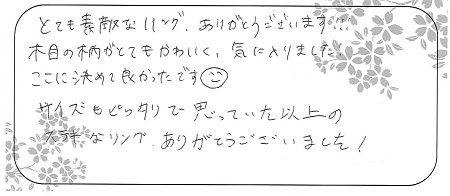 とても素敵なリング、ありがとうございます!!!
木目の柄がとてもかわいく、気に入りました!
ここに決めて良かったです☺
サイズもピッタリで思っていた以上の
なリング、ありがとうございました!